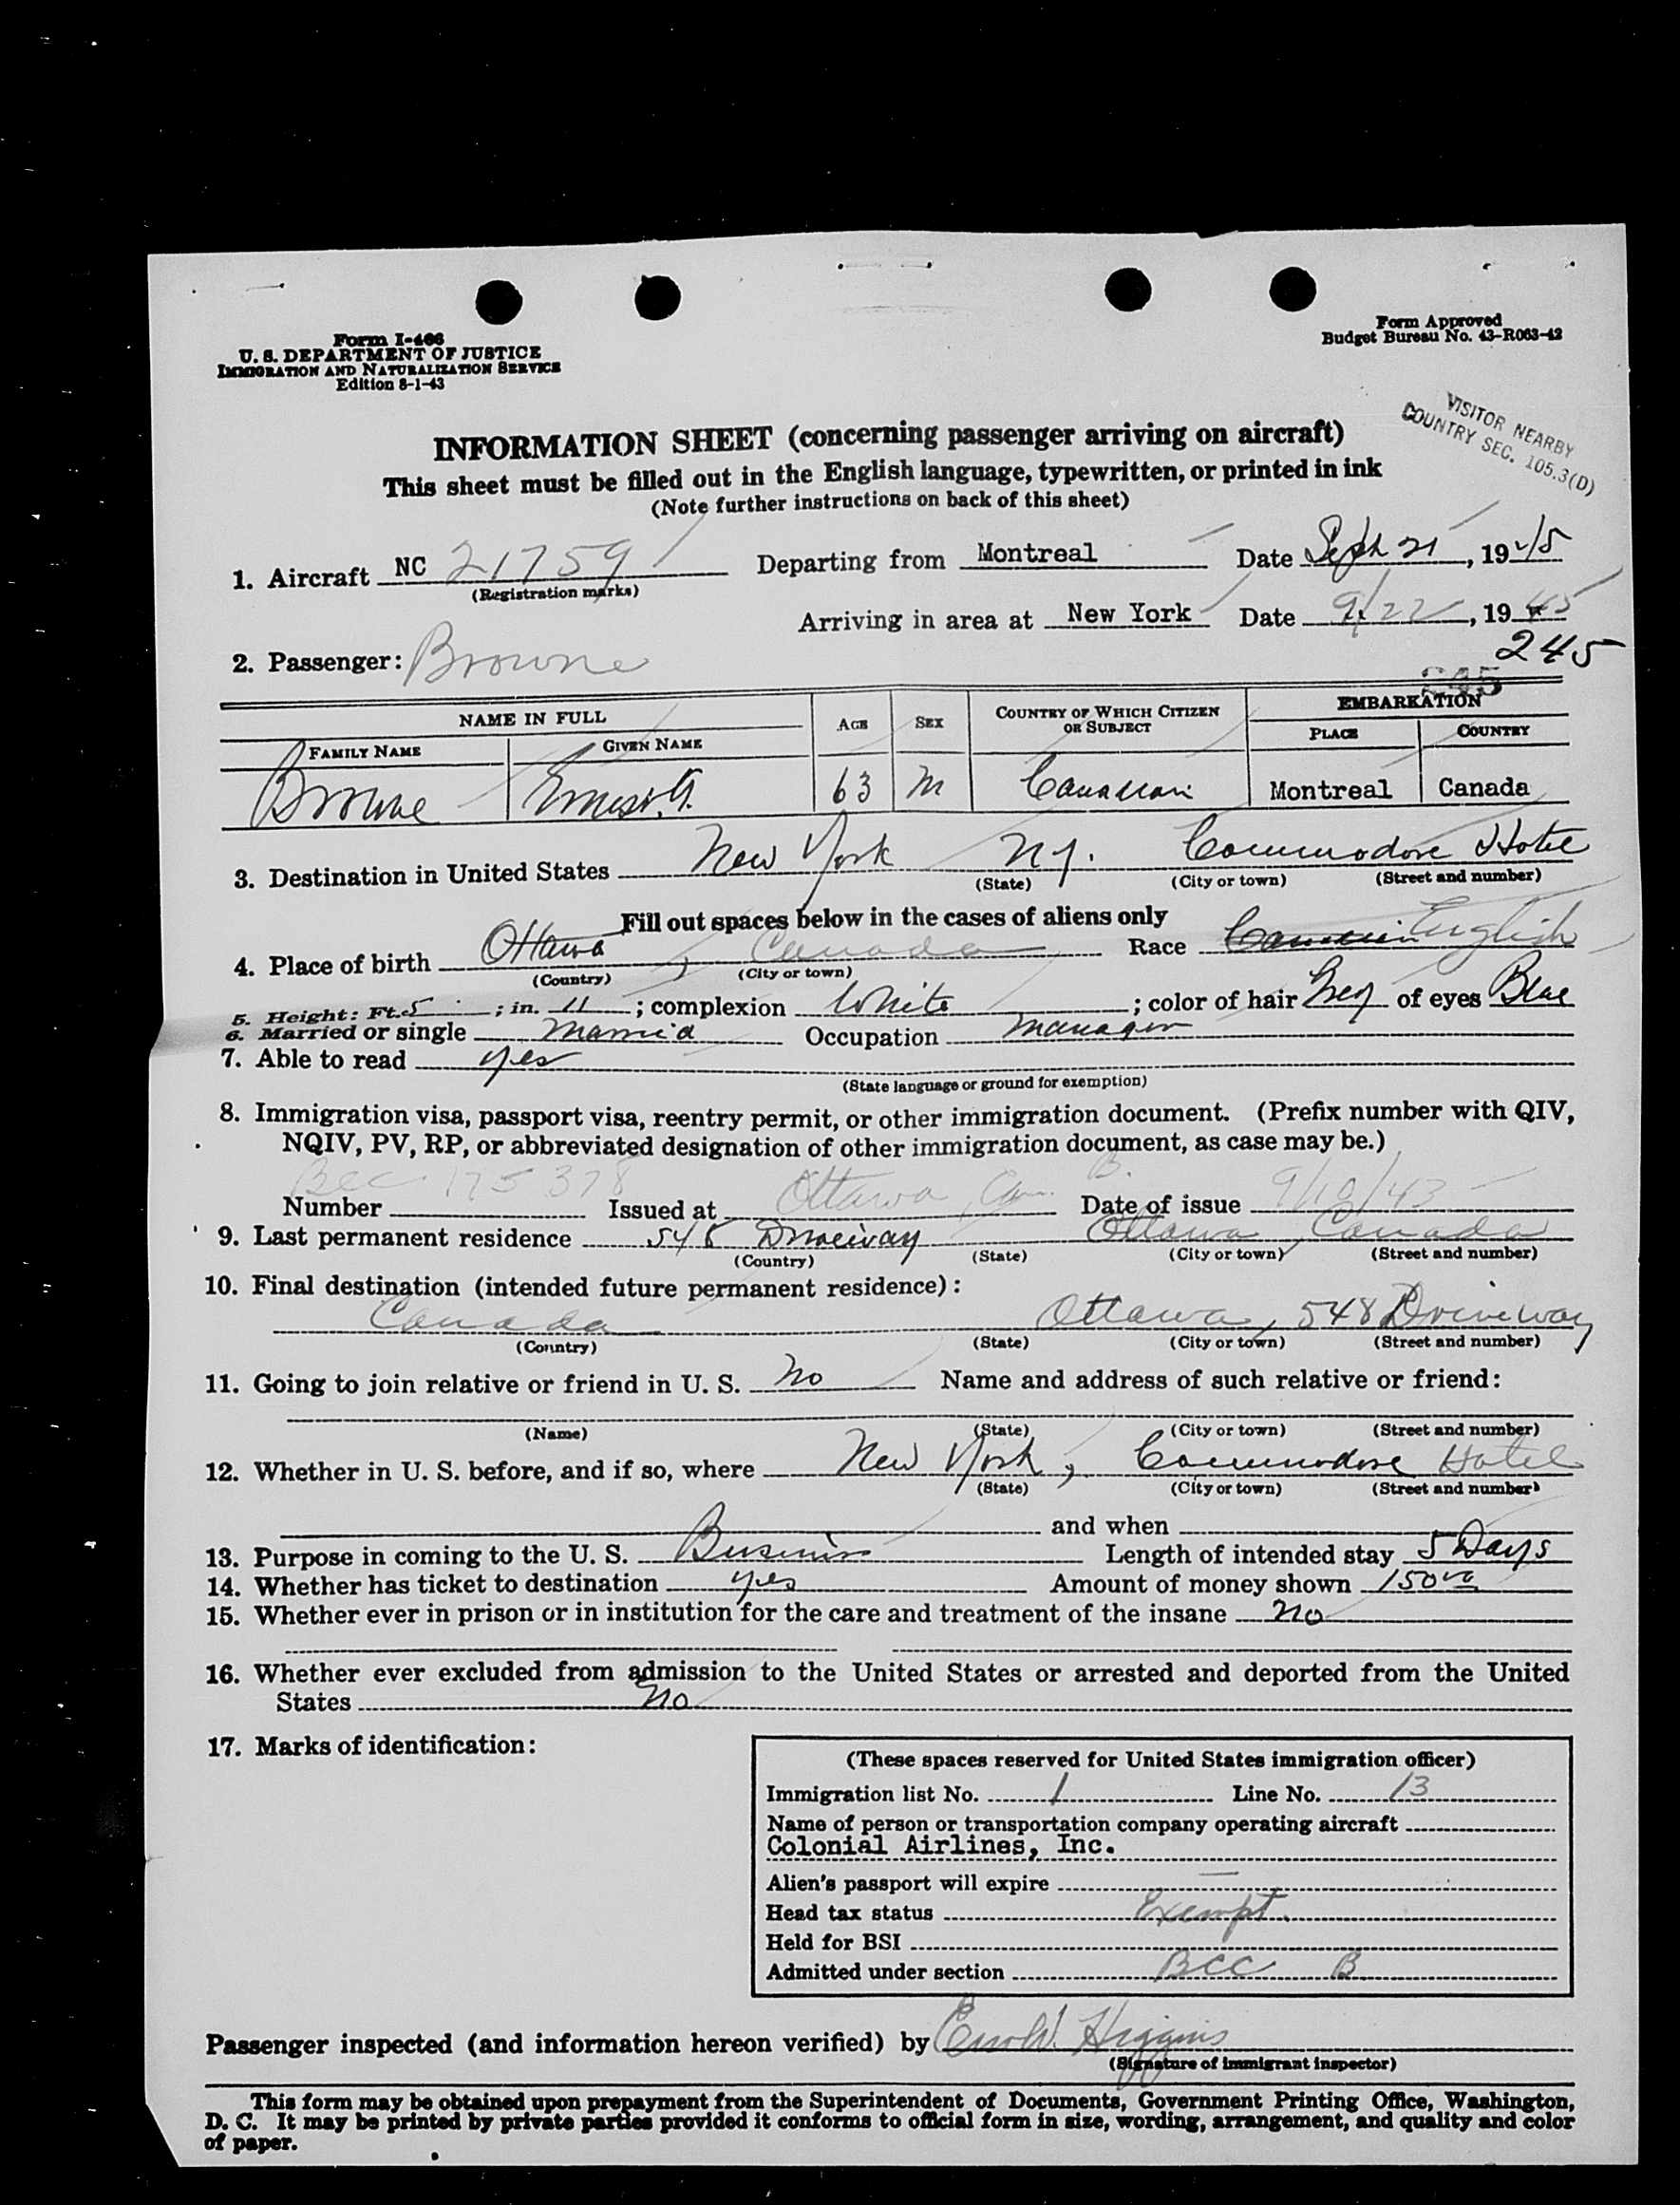 Form I-466
U. S. DEPARTMENT OF JUSTICE
IMMIGRATION AND NATURALIZATION SERVICE
Edition 8-1-43
Form Approved
Budget Bureau No. 43-R063-42
VISITOR NEARBY
COUNTRY SEC. 105.3(D)
INFORMATION SHEET (concerning passenger arriving on aircraft)
This sheet must be filled out in the English language, typewritten, or printed in ink
(Note further instructions on back of this sheet)
1. Aircraft NC 21759 Departing from Montreal Date Sept 21, 1945
(Registration marks)
Arriving in area at New York Date 9/22, 1945
245
2. Passenger: Browne
245
NAME IN FULL AGE SEX COUNTRY OF WHICH CITIZEN OR SUBJECT EMBARKATION
FAMILY NAME GIVEN NAME PLACE COUNTRY
Browne Ernest G. 63 M Canadian Montreal Canada
3. Destination in United States New York N.Y. Commodore Hotel
(State) (City or town) (Street and number)
Fill out spaces below in the cases of aliens only
4. Place of birth Ottawa, Canada Race Canadian English
(Country) (City or town)
5. Height: Ft. 5; in. 11; complexion White; color of hair Grey of eyes Blue
6. Married or single Married Occupation Manager
7. Able to read yes
(State language or ground for exemption)
8. Immigration visa, passport visa, reentry permit, or other immigration document. (Prefix number with QIV,
NQIV, PV, RP, or abbreviated designation of other immigration document, as case may be.)
Number BCC 175378 Issued at Ottawa, Can. B. Date of issue 9/10/43
9. Last permanent residence 548 Driveway Ottawa, Canada
(Country) (State) (City or town) (Street and number)
10. Final destination (intended future permanent residence):
Canada Ottawa, 548 Driveway
(Country) (State) (City or town) (Street and number)
11. Going to join relative or friend in U. S. No Name and address of such relative or friend:
(Name) (State) (City or town) (Street and number)
12. Whether in U. S. before, and if so, where New York, Commodore Hotel
(State) (City or town) (Street and number)
and when
13. Purpose in coming to the U. S. Business Length of intended stay 5 Days
14. Whether has ticket to destination yes Amount of money shown 150.00
15. Whether ever in prison or in institution for the care and treatment of the insane No
16. Whether ever excluded from admission to the United States or arrested and deported from the United
States No
17. Marks of identification:
(These spaces reserved for United States immigration officer)
Immigration list No. 1 Line No. 13
Name of person or transportation company operating aircraft
Colonial Airlines, Inc.
Alien's passport will expire —
Head tax status Exempt.
Held for BSI
Admitted under section BCC B
Passenger inspected (and information hereon verified) by W. Higgins
(Signature of immigrant inspector)
This form may be obtained upon prepayment from the Superintendent of Documents, Government Printing Office, Washington,
D. C. It may be printed by private parties provided it conforms to official form in size, wording, arrangement, and quality and color
of paper.